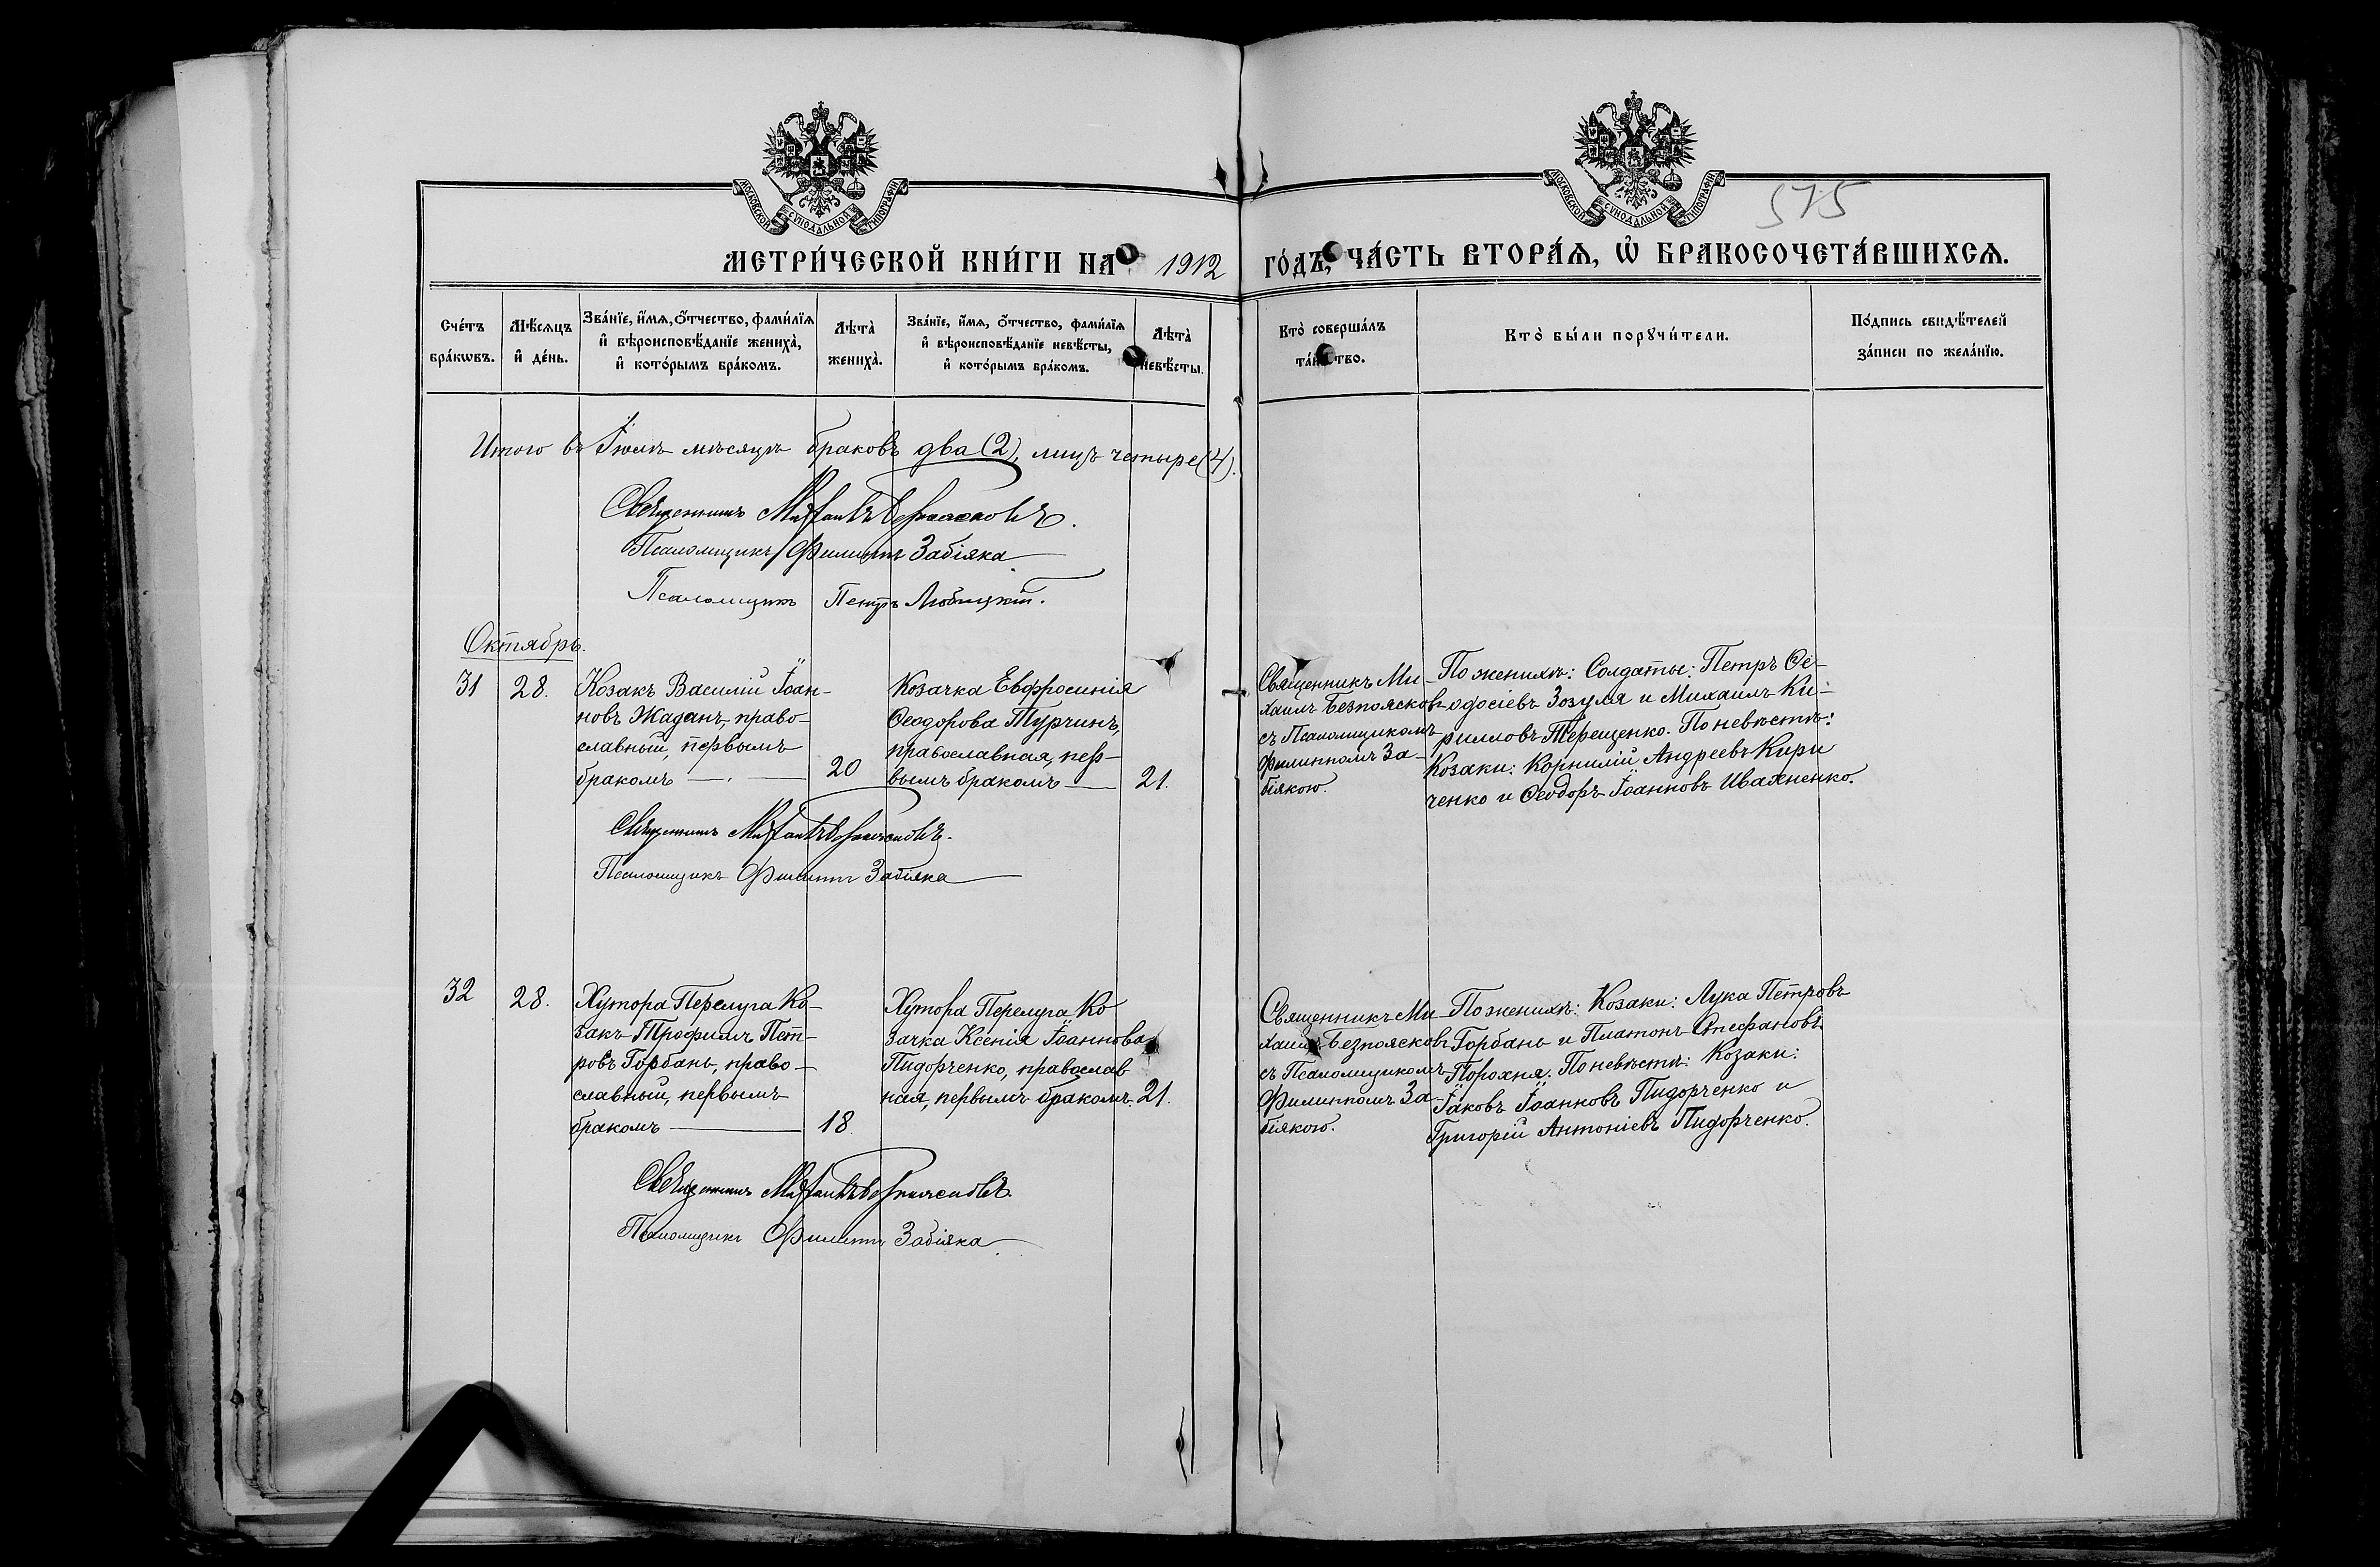 МОСКОВСКОЙ СѴНОДАЛЬНОЙ ТИПОГРАФІИ
МОСКОВСКОЙ СѴНОДАЛЬНОЙ ТИПОГРАФІИ
575
МЕТРИ́ЧЕСКОЙ КНИ́ГИ НА 1912 ГО́ДЪ, ЧА́СТЬ ВТОРА́Ѧ, Ѽ БРАКОСОЧЕТА́ВШИХСѦ.
Сче́тъ бра́кѡвъ.
Мѣ́сѧцъ и҆ де́нь.
Зва́нїе, и҆́мѧ, ѻ҆́тчество, фами́лїѧ и҆ вѣроисповѣ́данїе жениха̀, и҆ кото́рымъ бра́комъ.
Лѣта̀ жениха̀.
Зва́нїе, и҆́мѧ, ѻ҆́тчество, фами́лїѧ и҆ вѣроисповѣ́данїе невѣ́сты, и҆ кото́рымъ бра́комъ.
Лѣта̀ невѣ́сты.
Кто̀ соверша́лъ та́инство.
Кто̀ бы́ли порꙋчи́тели.
По́дпись свидѣ́телей за́писи по жела́нїю.
Итого въ Іюлѣ мѣсяцѣ браковъ два (2), лицъ четыре (4).
Священникъ Михаилъ Безпоясковъ.
Псаломщикъ Филиппъ Забіяка
Псаломщикъ Петръ Любицкій.
Октябрь.
31
28.
Козакъ Василій Іоан-
новъ Жаданъ, право-
славный, первымъ
бракомъ
20
Козачка Евфросинія
Ѳеодорова Турчинъ,
православная, пер-
вымъ бракомъ
21.
Священникъ Ми-
хаилъ Безпоясковъ
съ Псаломщикомъ
Филиппомъ За-
біякою.
По женихѣ: Солдаты: Петръ Ѳе-
одосіевъ Зозуля и Михаилъ Ки-
рилловъ Терещенко. По невѣстѣ:
Козаки: Корнилій Андреевъ Кири
ченко и Ѳеодоръ Іоанновъ Ивахненко.
Священникъ Михаилъ Безпоясковъ.
Псаломщикъ Филиппъ Забіяка
32
28.
Хутора Перелуга Ко-
закъ Трофимъ Пет-
ровъ Горбань, право-
славный, первымъ
бракомъ
18.
Хутора Перелуга Ко
зачка Ксенія Іоаннова
Пидорченко, православ
ная, первымъ бракомъ.
21.
Священникъ Ми-
хаилъ Безпоясковъ
съ Псаломщикомъ
Филиппомъ За-
біякою.
По женихѣ: Козаки: Лука Петровъ
Горбань и Платонъ Стефановъ
Порохня. По невѣстѣ: Козаки:
Іаковъ Іоанновъ Пидорченко и
Григорій Антоніевъ Пидорченко.
Священникъ Михаилъ Безпоясковъ.
Псаломщикъ Филиппъ Забіяка.